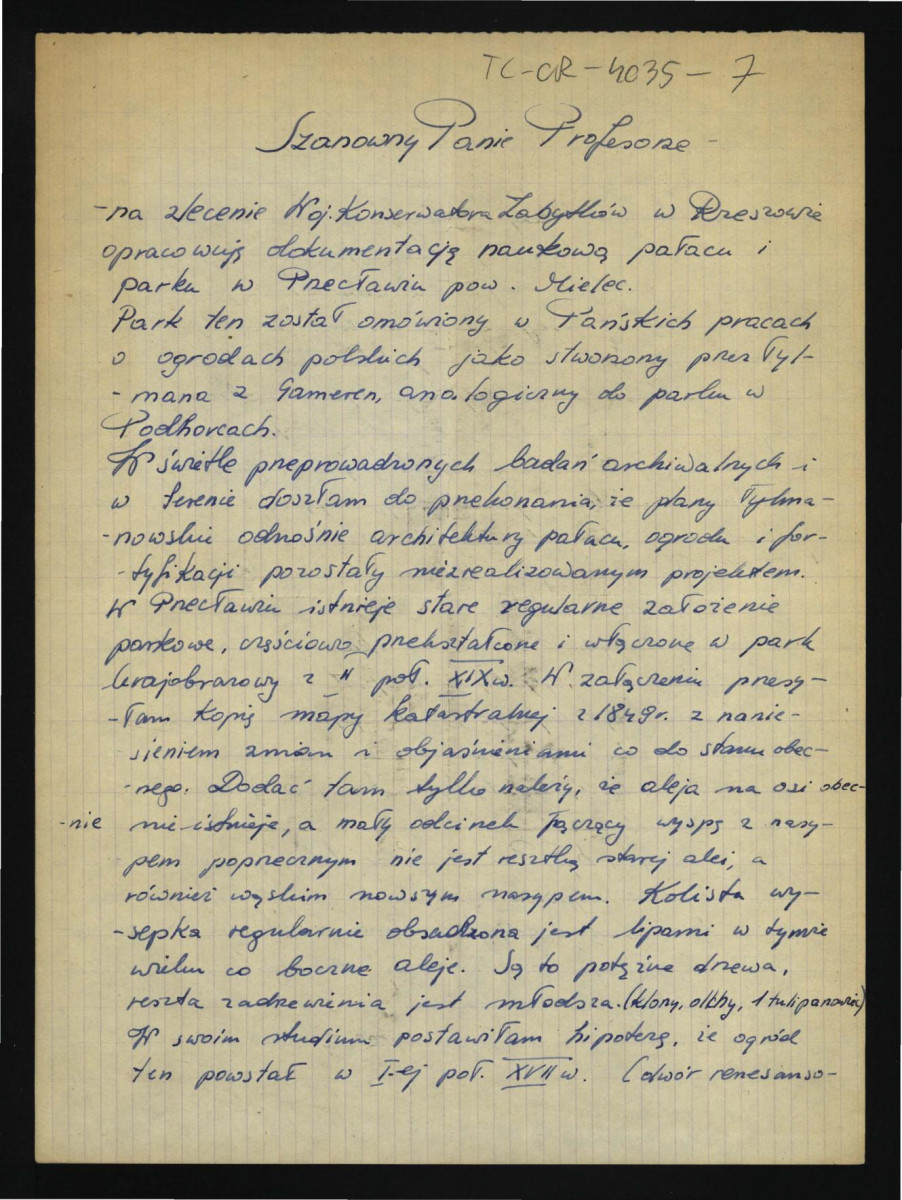 TC-CR-4035-7
Szanowny Panie Profesorze -
- na zlecenie Woj. Konserwatora Zabytków w Rzeszowie
opracowuję dokumentację naukową pałacu i
parku w Przecławiu pow. Mielec.
Park ten został omówiony w Pańskich pracach
o ogrodach polskich jako stworzony przez Tyl-
- mana z Gameren, analogiczny do parku w
Podhorcach.
W świetle przeprowadzonych badań archiwalnych i
w terenie doszłam do przekonania, że plany Tylma-
- nowskie odnośnie architektury pałacu, ogrodu i for-
- tyfikacji pozostały niezrealizowanym projektem.
W Przecławiu istnieje stare regularne założenie
parkowe, częściowo przekształcone i włączone w park
krajobrazowy z II poł. XIX w. W załączeniu przesy-
- łam kopię mapy katastralnej z 1849 r. z nanie-
sieniem zmian i objaśnieniami co do stanu obec-
- nego. Dodać tam tylko należy, że aleja na osi obec-
- nie nie istnieje, a mały odcinek łączący wyspę z nasy-
pem poprzecznym nie jest resztką starej alei, a
również wąskim nowszym nasypem. Kolista wy-
- sepka regularnie obsadzona jest lipami w tymże
wieku co boczne aleje. Są to potężne drzewa,
reszta zadrzewienia jest młodsza. (klony, olchy, 1 tulipanowiec)
W swoim studium postawiłam hipotezę, że ogród
ten powstał w I-ej poł. XVII w. (dwór renesanso-